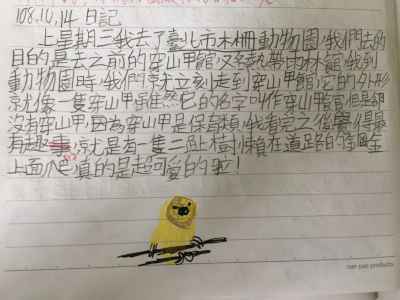 108.10,14 日記
上星期三我去了臺北市木柵動物園,我們去的
目的是去之前的穿山甲館,又名熱帶雨林館,我到
動物園時,我們就立刻走到穿山甲館,它的外形
就像一隻穿山甲雖然它的名字叫作穿山甲館但是卻
沒有穿山甲,因為穿山甲是保育類,我看完之後覺得最
有趣,就是有一隻二趾樹懶在道路的
上面 真的是超可愛的啦!